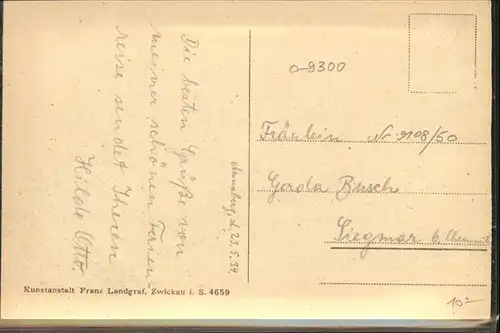 Annaberg, d. 23.5.34.
Die besten Grüße von
meiner schönen Ferien-
reise sendet Ihnen
Hilde Otto.
o-9300
Fräulein Nr. 9108/50
Gerda Busch
Siegmar b. Chemnitz
Kunstanstalt Franz Landgraf, Zwickau i. S. 4659
10.-